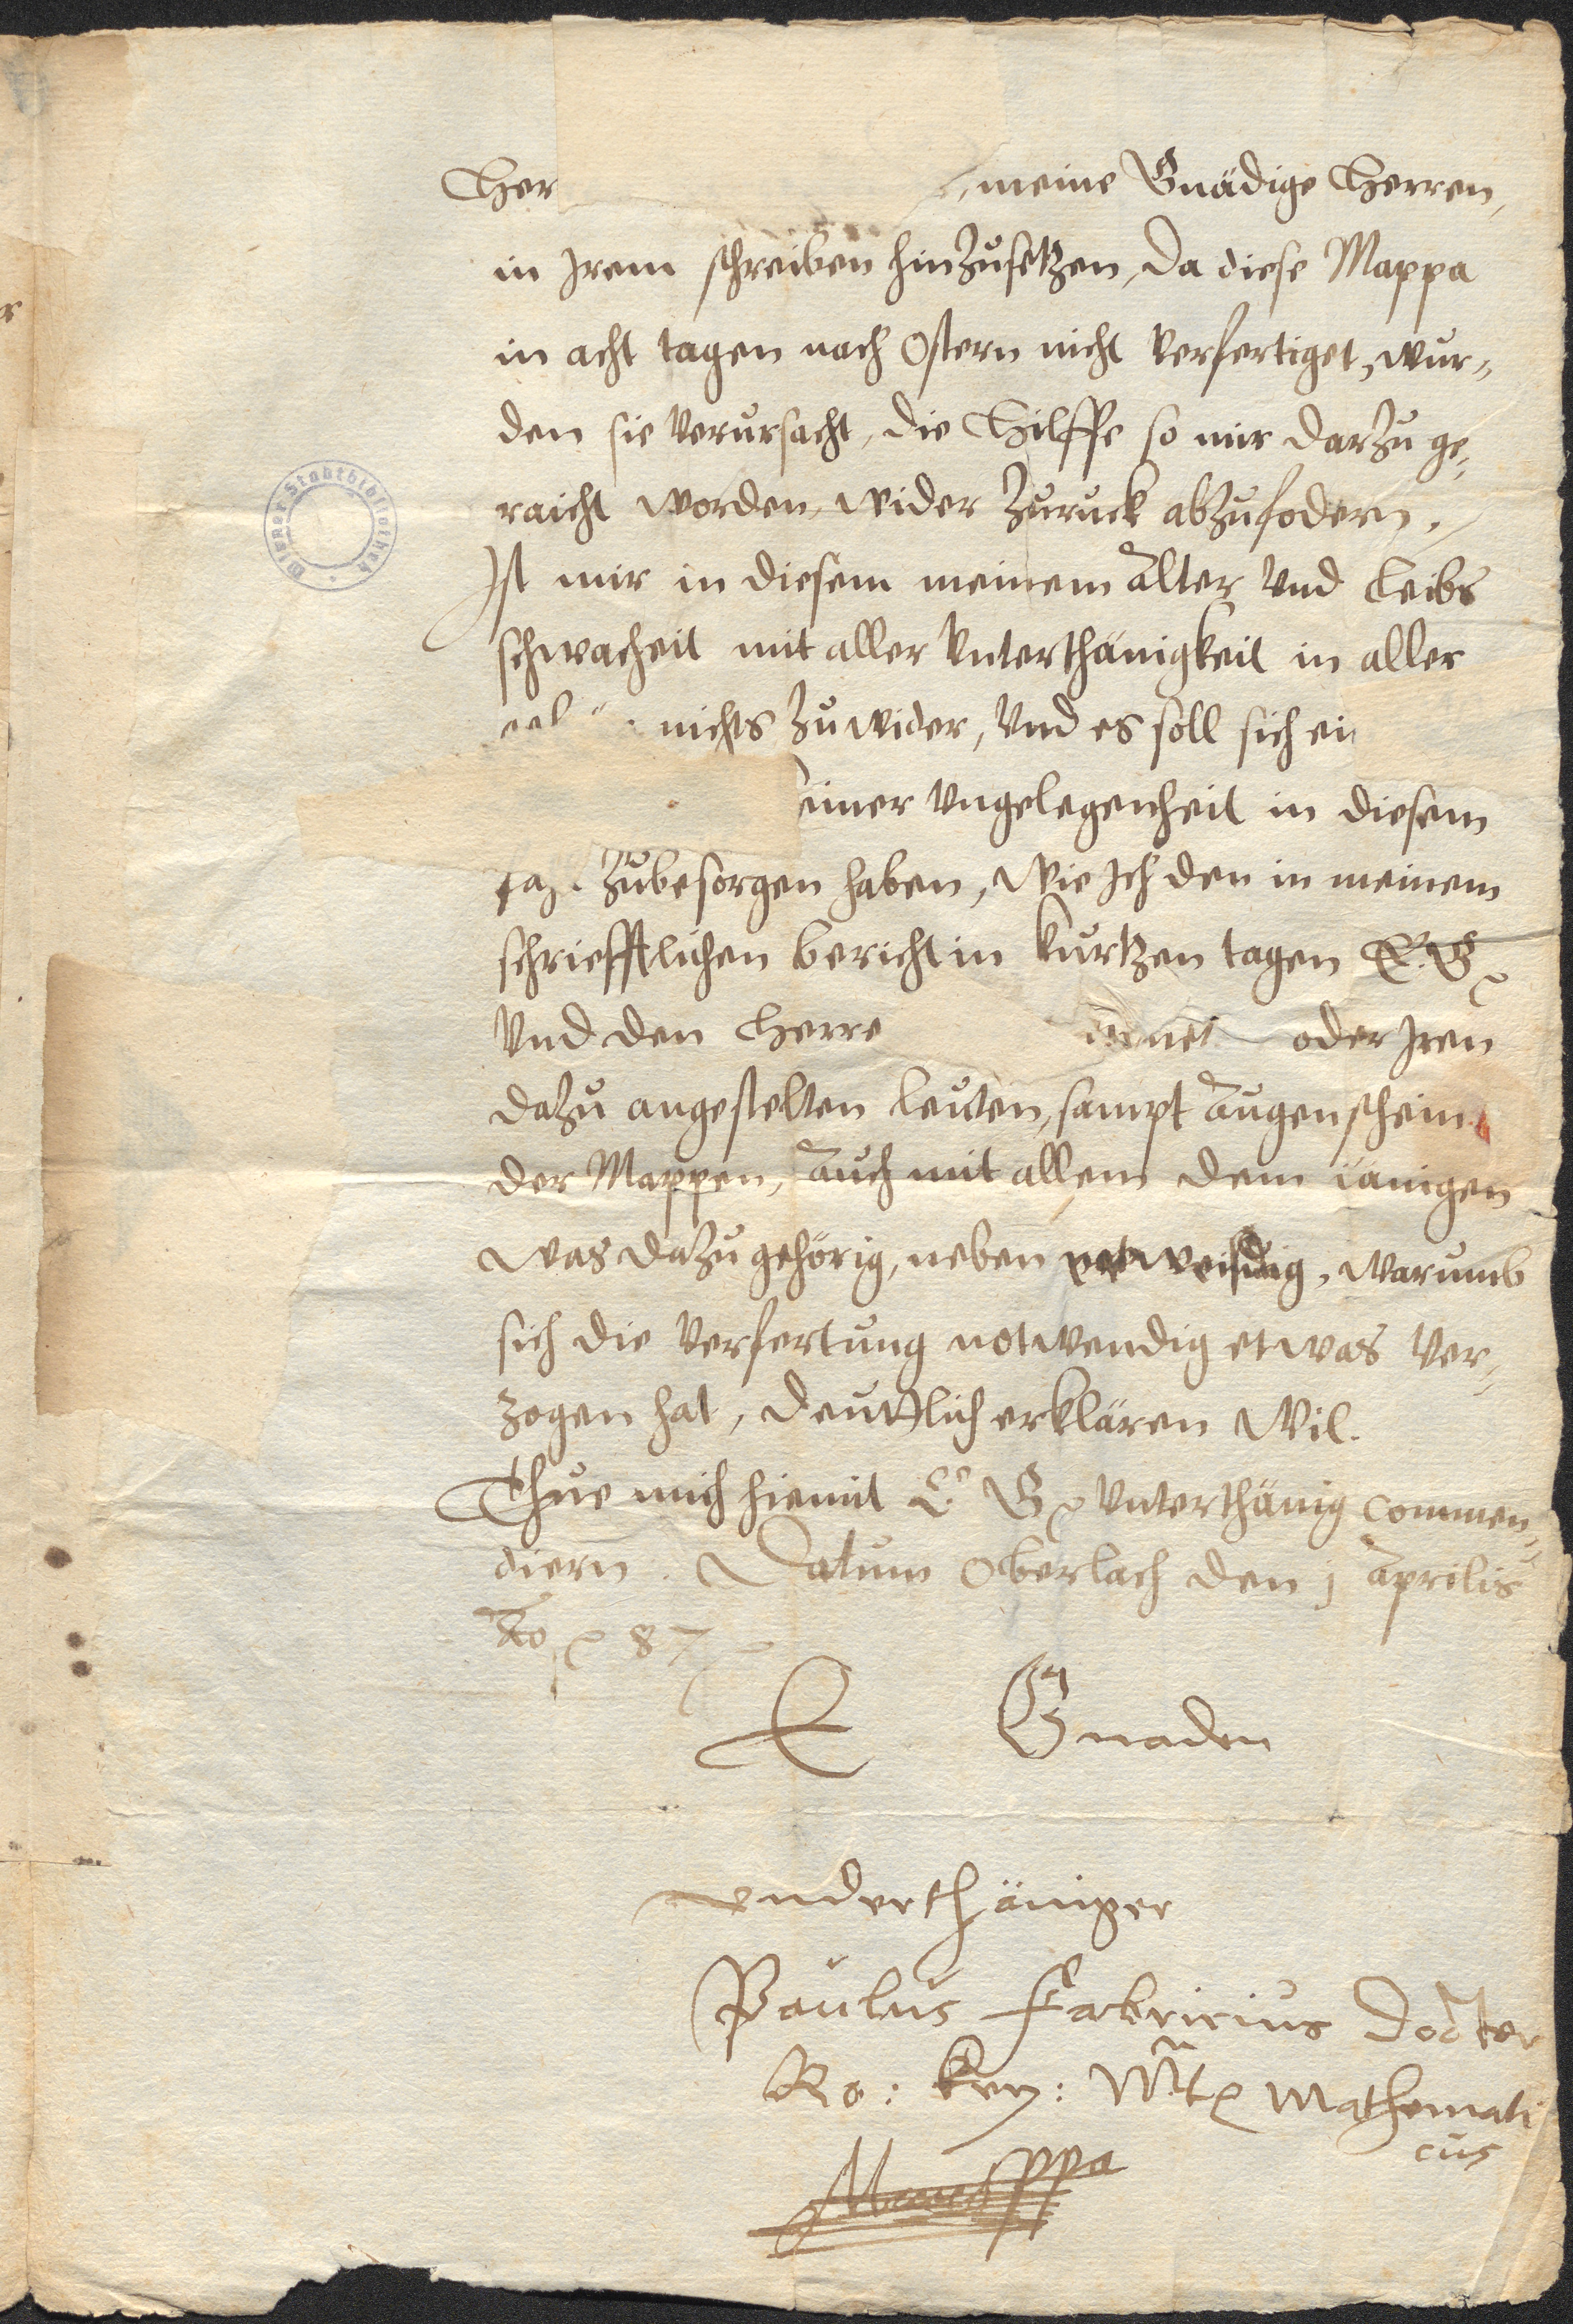 Her , meine Gnädige Herren,
in Irem schreiben hinzusetzen, Da diese Mappa
in acht tagen nach Ostern nicht verfertiget, wur-
den sie verursacht, die Hilffe so mir darzu ge-
raicht worden, wider zuruck abzufodern.
Ist mir in diesem meinem Alter vnd Leibs
schwacheit mit aller vnterthänigkeit in aller
nichts zuwider, vnd es soll sich ei
einer vngelegenheit in diesem
zubesorgen haben, wie Ich den in meinem
schriefftlichen bericht in kurtzen tagen E. G.
vnd den Herre oder Iren
dazu angestelten leuten, sampt Augenschein
der Mappen, Auch mit allem dem ienigen
was dazu gehörig, neben , warumb
sich die verfertung notwendig etwas ver-
zogen hat, deuttlich erklären wil.
Thue mich hiemit E. G. vnterthänig commen-
diern. Datum Oberlach den j Aprilis
Ao 87
E Gnaden
vnderthäniger
Paulus Fabricius Docter
Ro: Key: Mt Mathemati
cus
Wiener Stadtbibliothek